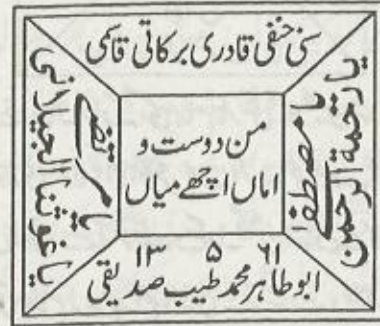 سنی حنفی قادری برکاتی قاسمی
یا رحمۃ الرحمن
یا مصطفیٰ
من دوست و
اماں اچھے میاں
یا مرتضیٰ
یا غوثنا الجیلانی
۱۳ ۵ ۶۱
ابو طاہر محمد طیب صدیقی